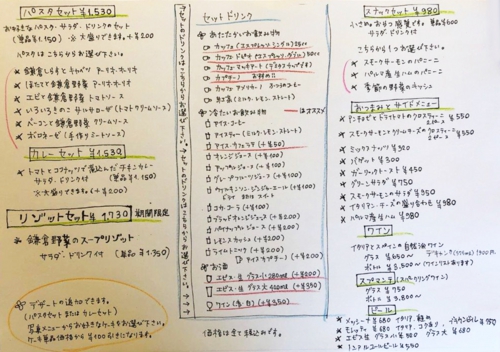 パスタセット ¥1,530
お好きなパスタ・サラダ・ドリンクのセット
(単品 ¥1,150) ※大盛りできます。¥200
パスタはこちらからお選び下さい。
※ 鎌倉しらすとキャベツ アーリオ・オーリオ
※ ほたてと鎌倉野菜 アーリオ・オーリオ
※ エビと鎌倉野菜 トマトソース
※ いろいろきのこ サルサローザ(トマトクリームソース)
※ ベーコンと鎌倉野菜 クリームソース
※ ボロネーゼ(手作りミートソース)
カレーセット ¥1,530
※ トマトとココナッツで煮込んだチキンカレー
サラダ・ドリンク付 (単品 ¥1,150)
※大盛りできます(+¥200)
リゾットセット ¥1,730 期間限定
※ 鎌倉野菜のスープリゾット
サラダ・ドリンク付 (単品 ¥1,350)
※ デザートの追加できます。
(パスタセット または カレーセット)
写真メニューからお好きなケーキをお選び下さい。
ケーキ単品価格から ¥100引きになります。
セットのドリンクはこちらからお選び下さい。
セットドリンク
あたたかいお飲み物
カッフェ(エスプレッソ・シングル) 25cc
カッフェ・ドッピオ(エスプレッソ・ダブル) 50cc
カッフェ・マッキアート
カプチーノ
カフェ・アメリカーノ
紅茶(ミルク・レモン・ストレート)
冷たいお飲み物
はオススメ
アイスコーヒー
アイスティー(ミルク・レモン・ストレート)
アイス・カフェラテ (+¥50)
オレンジジュース (+¥100)
アップルジュース (+¥100)
グレープフルーツジュース (+¥100)
ウィルキンソン・ジンジャーエール (+¥100)
コカ・コーラ (+¥100)
ブラッドオレンジジュース (+¥200)
パイナップルジュース (+¥200)
レモンスカッシュ (+¥200)
ライムソーダ (+¥200)
アイスカプチーノ (+¥200)
お酒
エビス・生 グラス小 280ml (+¥200)
エビス・生 グラス大 420ml (+¥350)
ワイン(赤・白) (+¥350)
価格は全て税込みです。
スナックセット ¥980
サラダ・ドリンク付
こちらから1つお選び下さい。
※ スモークサーモンのパニーニ
※ パルマ産生ハムのパニーニ
※ 季節の野菜のキッシュ
おつまみとサイドメニュー
※ ミックスナッツ ¥320
※ バゲット ¥300
※ ガーリックトースト ¥450
※ グリーンサラダ ¥750
※ スモークサーモンのサラダ ¥950
※ イタリアンチーズの盛り合わせ ¥980
※ パルマ産生ハム ¥980
ワイン
イタリアとスペインの自然派ワイン
グラス ¥650~
ボトル ¥3,500~(ワインリストあります)
スプマンテ(スパークリングワイン)
グラス ¥750
ボトル ¥3,800~
ビール
※ メッシーナ ¥680
※ モレッティ ¥680
※ エビス生 グラス小 ¥480 グラス大 ¥680
※ ノンアルコールビール ¥540